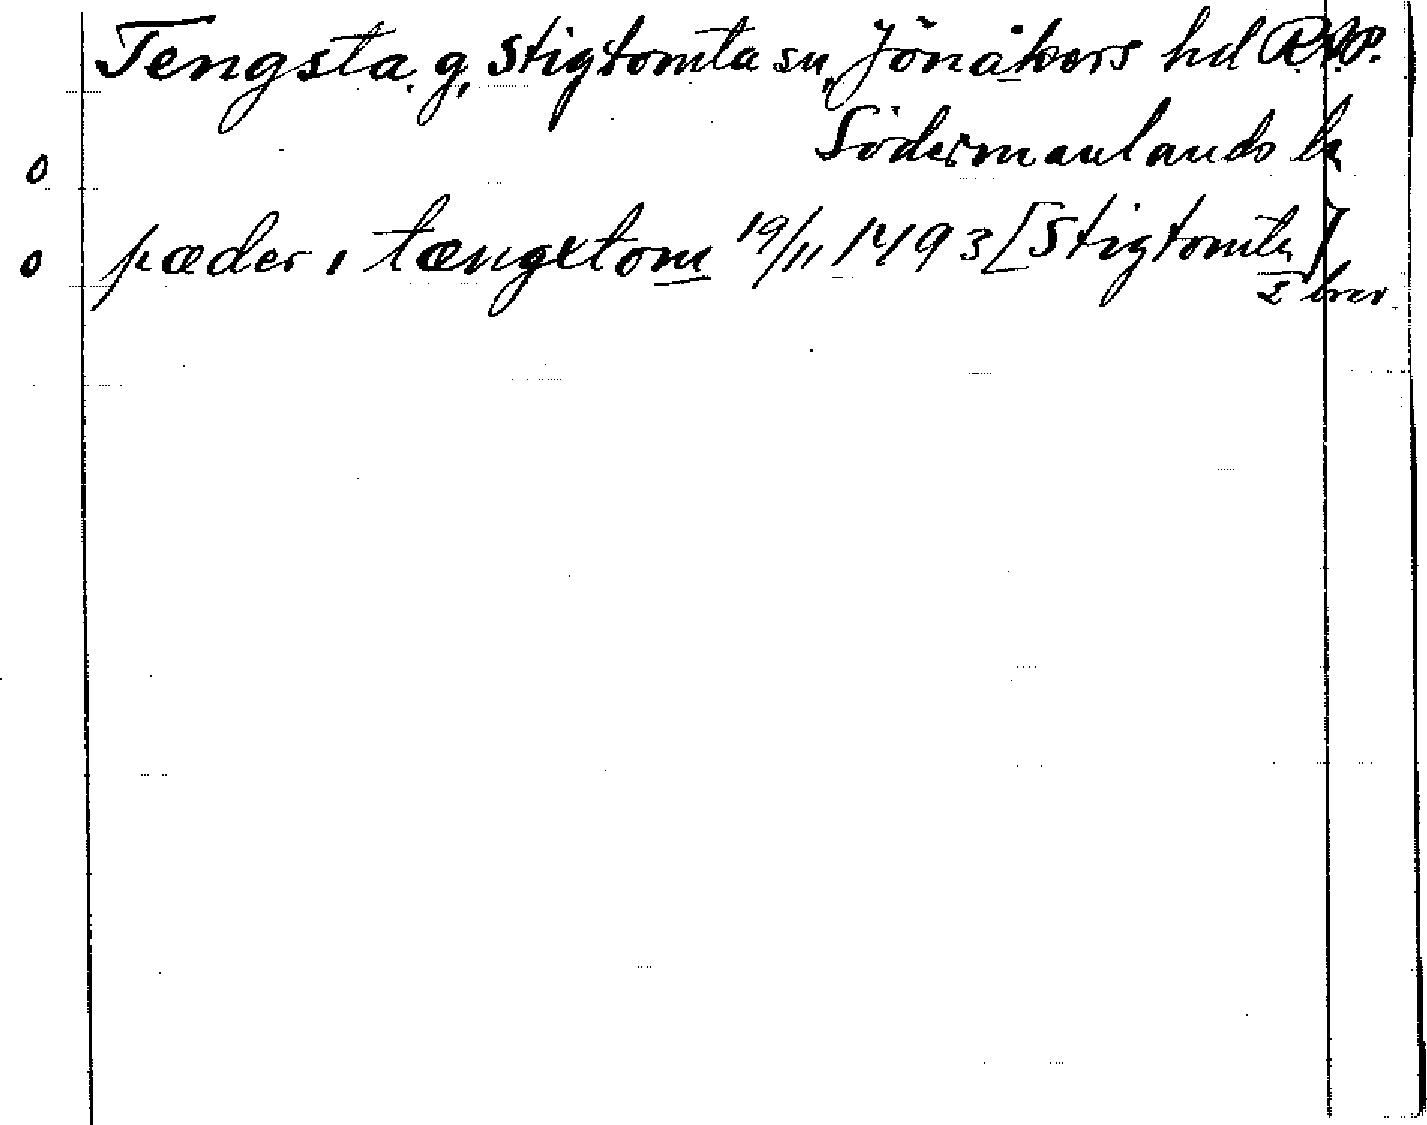 Tengsta, g, Stigtomta sn, Jönåkers hd R.P.
Södermanlands l.
pæder i tængxtom 19/11 1493 [Stigtomta]
2 brev